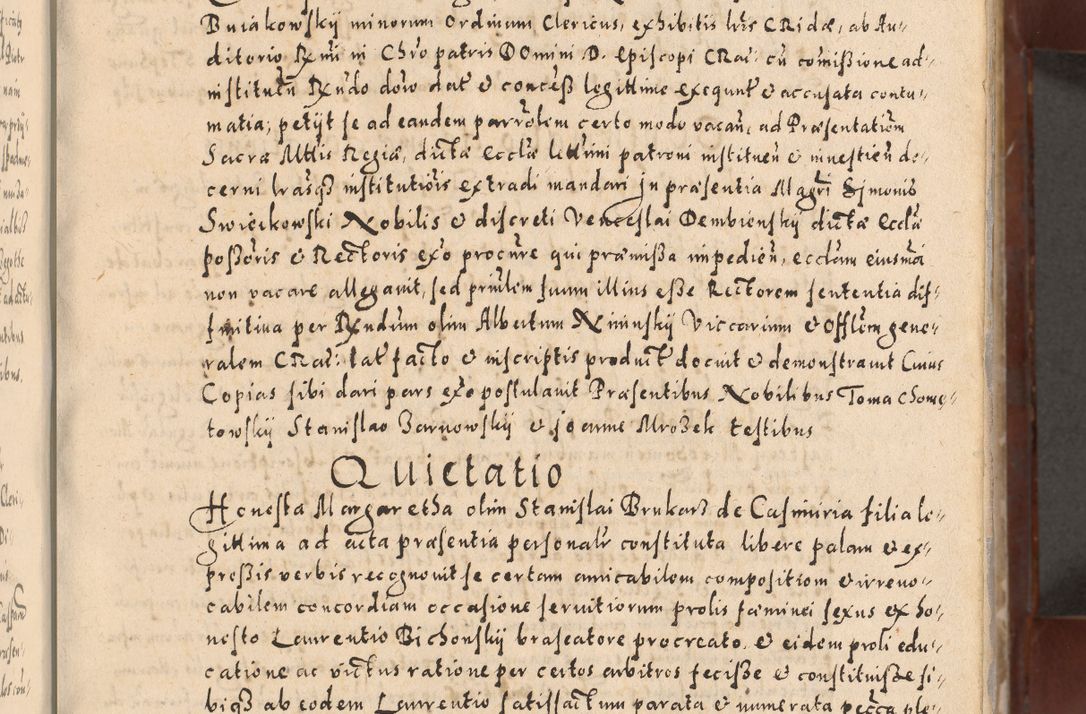 Buiakowskÿ minorum Ordinum Clericus, exhibitis lrīs CRidæ, ab Au-
ditorio Rxmi in Chrō patris DOmini D. Episcopi CRac: cū comißione ad
institutū Rxndo dōw dat & conceß legittime exequut & accusata contu-
matia, petÿt se ad eandem parrōlem certo modo vacan, ad Præsentatiōm
Sacræ Mttis Regiæ, dictæ Ecclæ littimi patroni instituen & inuestien de-
cerni lrasqȝ institutiōis extradi mandari Jn præsentia Magri Simonis
Swiecikowski Nobilis & discreti Venceslai Dembienskÿ dictæ Ecclæ
poßōris & Rectoris exō procure qui præmißa impedien, ecclam eiusmōi
non vacare allegauit, sed priulem suum illius eße Rectorem sententia dif-
finitiua per Rxndum olim Albertum Nininskÿ Viccarium & Offlem gene-
ralem CRac: lat facto & inscriptis product docuit & demonstrauit Cuius
Copias sibi dari pars exō postulauit Præsentibus Nobilibus Toma Chome-
towskÿ Stanislao Zarnowskÿ & joanne Mrożek testibus
Quietatio
Honesta Margaretha olim Stanislai Brukarz de Casimiria filia le-
gittima ad acta præsentia personalr constituta libere palam & ex-
preßis verbis recognouit se certam amicabilem compositiom & irreuo-
cabilem concordiam occasione seruitiorum prolis fæminei sexus ex ho-
nesto Laurentio Bichonskÿ braseatore procreato & eidem proli edu-
catione ac victus ratione per certos arbitros feciße & constituiße si-
biqȝ ab eodem Laurentio satisfactum parata & numerata pecca ple-